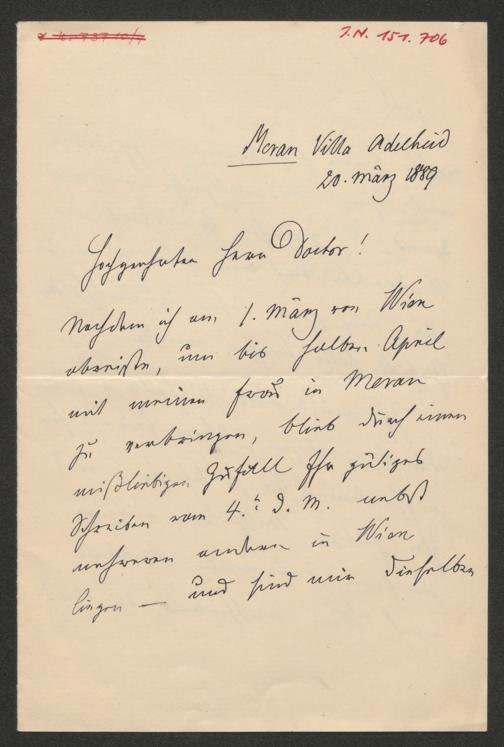 I.N. 151.706
Meran Villa Adelheid
20. März 1889
Hochgeehrter Herr Doctor!
Nachdem ich am 1. März von Wien
abreiste, um bis halben April
mit meiner Frau in Meran
zu verbringen, blieb durch einen
mißliebigen Zufall Ihr gütiges
Schreiben vom 4. d. M. nebst
mehreren anderen in Wien
liegen — und sind mir dieselben